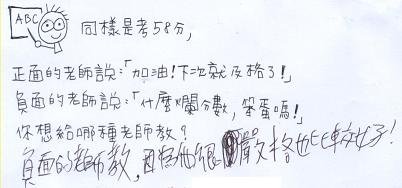 ABC
同樣是考58分,
正面的老師說:「加油!下次就及格了!」
負面的老師說:「什麼爛分數,笨蛋嗎!」
你想給哪種老師教?
負面的老師教,因為他很嚴格也比較好!